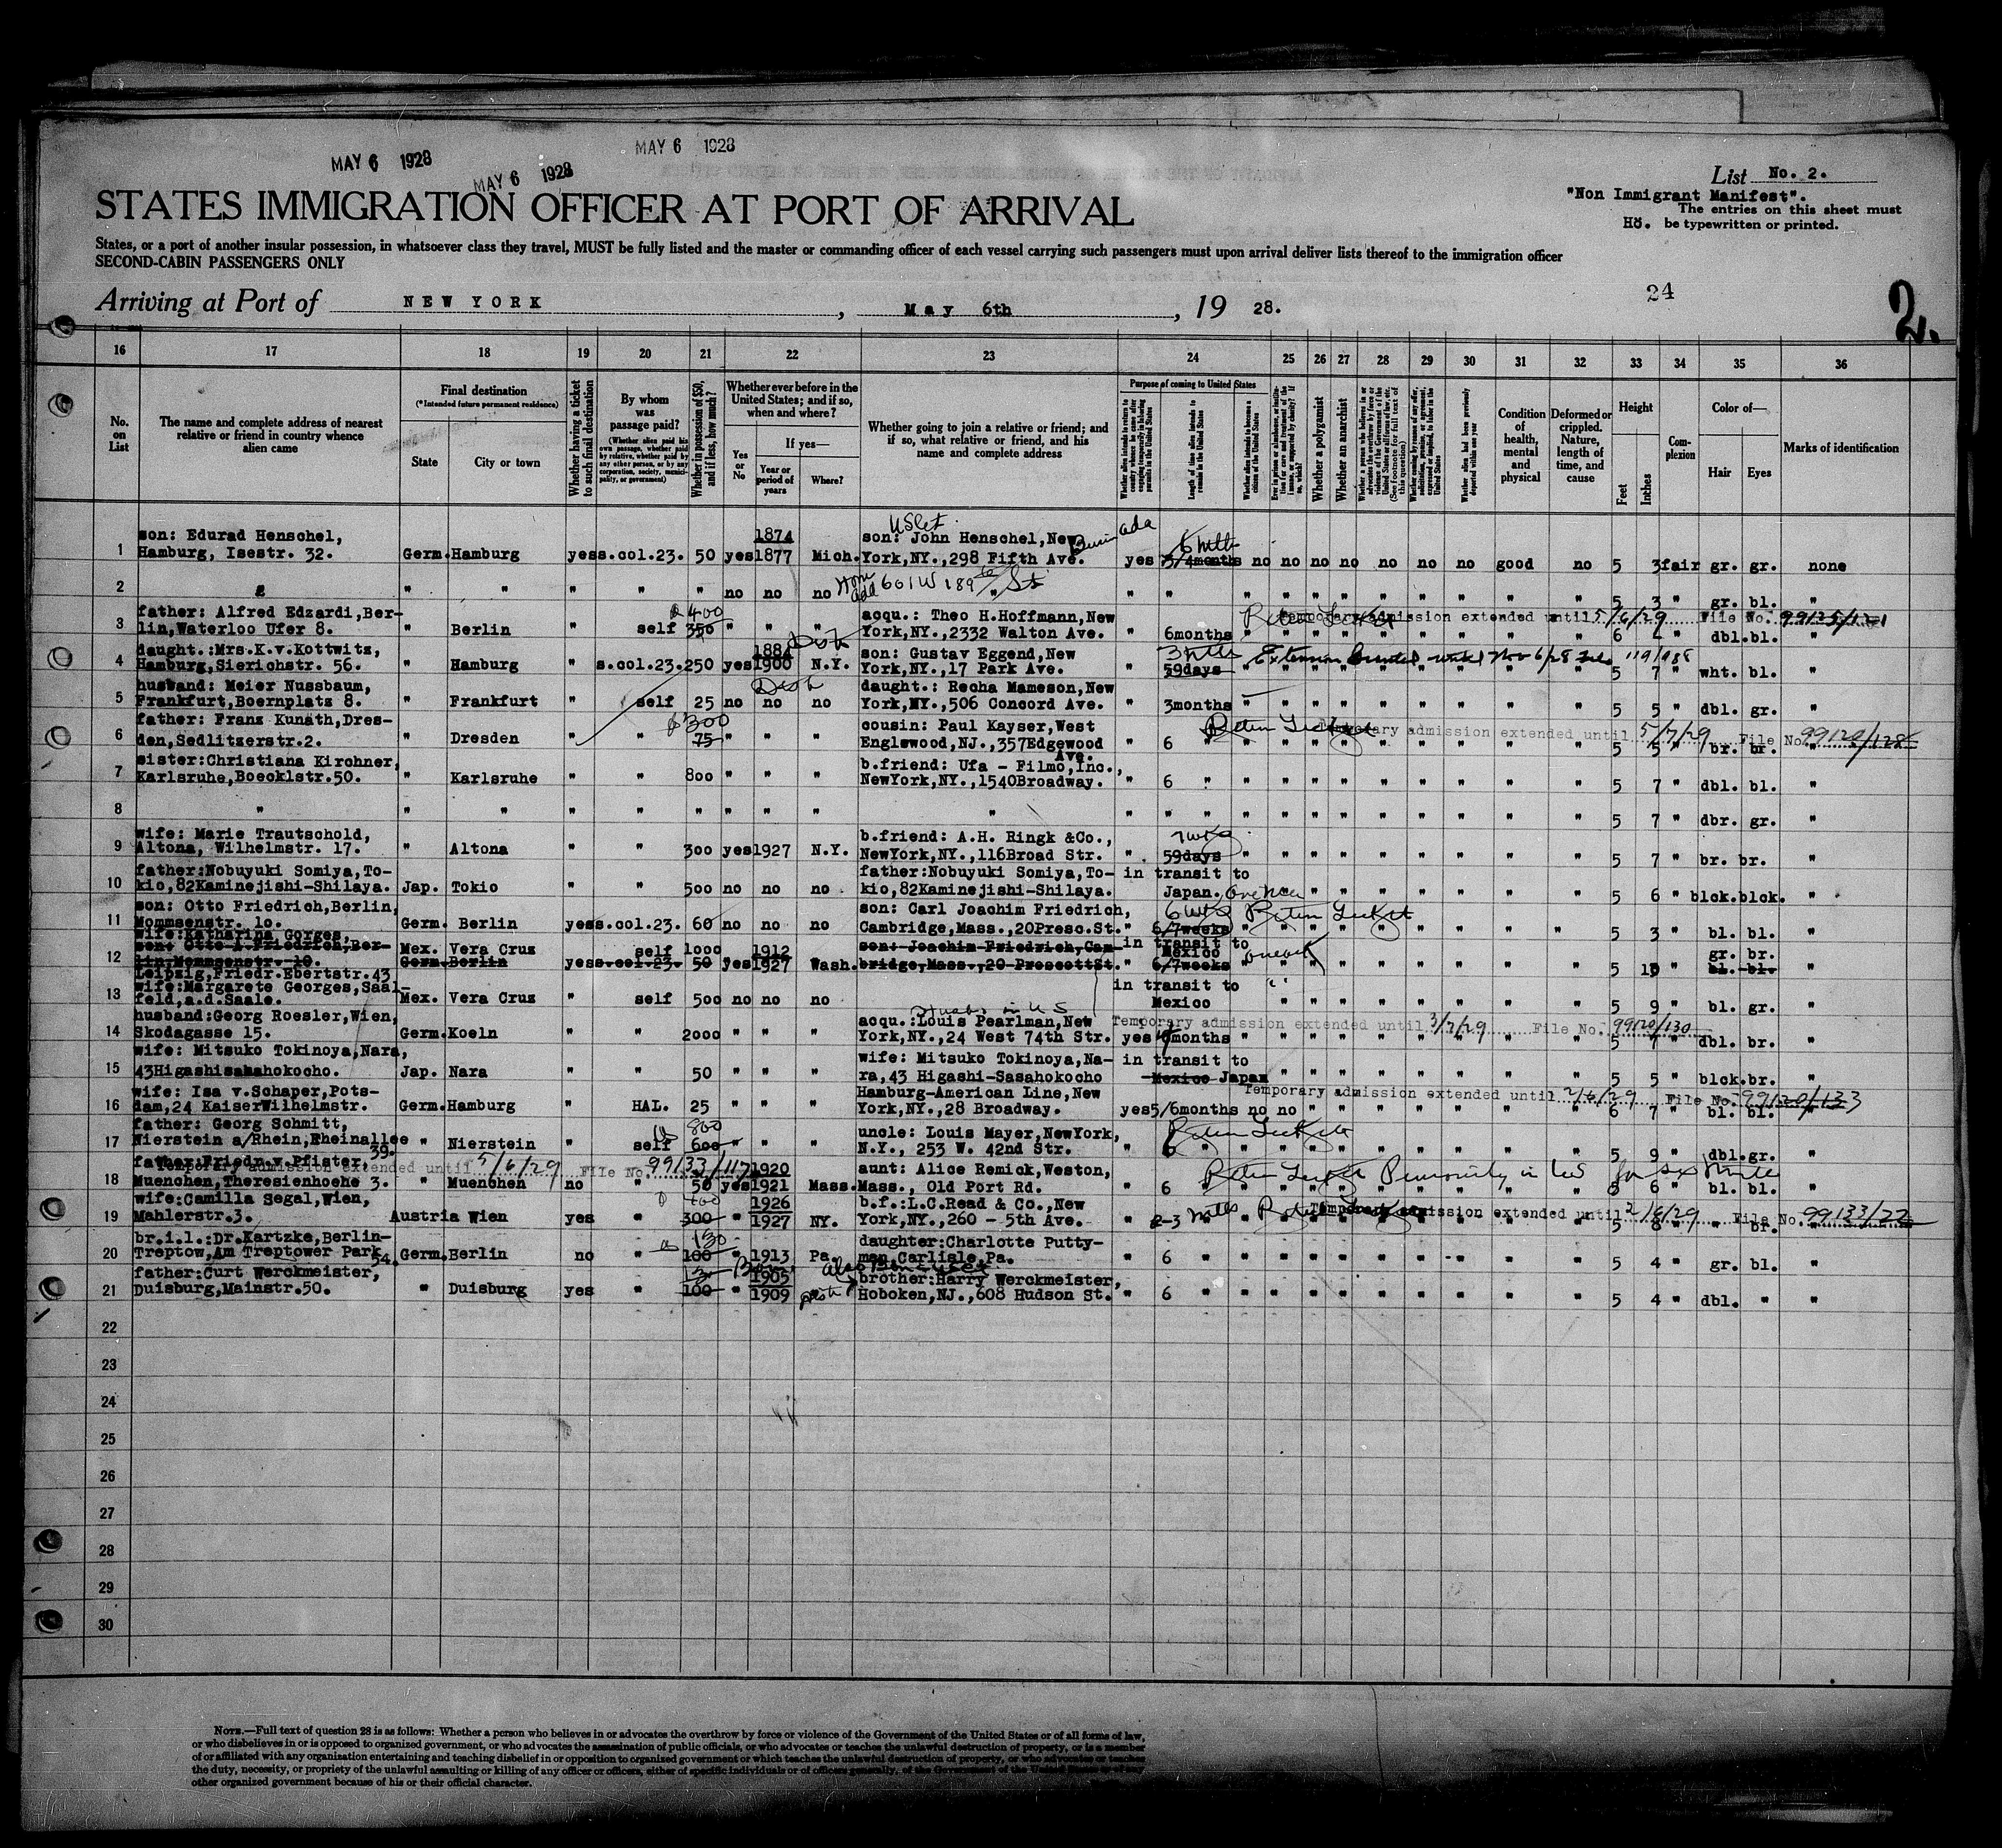 MAY 6 1928
MAY 6 1928
MAY 6 1928
List No. 2.
"Non Immigrant Manifest".
The entries on this sheet must
be typewritten or printed.
STATES IMMIGRATION OFFICER AT PORT OF ARRIVAL
States, or a port of another insular possession, in whatsoever class they travel, MUST be fully listed and the master or commanding officer of each vessel carrying such passengers must upon arrival deliver lists thereof to the immigration officer
SECOND-CABIN PASSENGERS ONLY
Arriving at Port of NEW YORK, May 6th, 19 28.
24
2.
16 17 18 19 20 21 22 23 24 25 26 27 28 29 30 31 32 33 34 35 36
No. on List
The name and complete address of nearest relative or friend in country whence alien came
Final destination
(*Intended future permanent residence)
State
City or town
Whether having a ticket to such final destination
By whom was passage paid?
(Whether alien paid his own passage, whether paid by relative, whether paid by any other person, or by any corporation, society, municipality, or government)
Whether in possession of $50, and if less, how much?
Whether ever before in the United States; and if so, when and where?
Yes or No
If yes—
Year or period of years
Where?
Whether going to join a relative or friend; and if so, what relative or friend, and his name and complete address
Purpose of coming to United States
Length of time alien intends to remain in the United States
Whether alien intends to become a citizen of the United States
Whether a polygamist
Whether an anarchist
Whether alien had been previously deported within one year
Condition of health, mental and physical
Deformed or crippled. Nature, length of time, and cause
Height
Feet
Inches
Complexion
Color of—
Hair
Eyes
Marks of identification
1 son: Edurad Henschel, Hamburg, Isestr. 32. Germ. Hamburg yes s.col.23. 50 yes 1874 1877 Mich. son: John Henschel, New York,NY.,298 Fifth Ave. yes 3/4months 6 mths no no no no no no no good no 5 3 fair gr. gr. none
2 " " " no no no 601 W 189th St " " " " " " " " " " " 5 3 " gr. bl. "
3 father: Alfred Edzardi,Berlin,Waterloo Ufer 8. " Berlin self 350 400 " " " acqu.: Theo H.Hoffmann,New York,NY.,2332 Walton Ave. " 6months Temporary admission extended until 5/6/29 File No. 99125/121 6 " dbl.bl. "
4 daught.:Mrs.K.v.Kottwitz, Hamburg,Sierichstr. 56. " Hamburg " s.col.23. 250 yes 1884 1900 N.Y. son: Gustav Eggend,New York,NY.,17 Park Ave. " 59days 3 mths Extension Granted until Nov 6/28 5 7 " wht. bl. "
5 husband: Meier Nussbaum, Frankfurt,Boernplatz 8. " Frankfurt self 25 no no no daught.: Recha Mameson,New York,NY.,506 Concord Ave. " 3months " 5 5 " dbl. gr. "
6 father: Franz Kunath,Dresden,Sedlitzerstr.2. " Dresden " " 75 $300 " " " cousin: Paul Kayser,West Englewood,NJ.,357Edgewood Ave. " 6 Temporary admission extended until 5/7/29 File No. 99120/128 5 5 " br. br. "
7 sister:Christiana Kirchner, Karlsruhe,Boecklstr.50. " Karlsruhe " " 800 " " " b.friend: Ufa - Filmo,Inc., NewYork,NY.,1540Broadway. " 6 " 5 7 " dbl. bl. "
8 " " " " " " " " " " " " " 5 7 " dbr. gr. "
9 wife: Marie Trautschold, Altona, Wilhelmstr. 17. " Altona " " 300 yes 1927 N.Y. b.friend: A.H. Ringk &Co., NewYork,NY.,116Broad Str. " 59days 5 7 " br. br. "
10 father:Nobuyuki Somiya,Tokio,82Kaminejishi-Shilaya. Jap. Tokio " " 500 no no no father:Nobuyuki Somiya,Tokio,82Kaminejishi-Shilaya. in transit to Japan. 5 6 " blck.blck. "
11 son: Otto Friedrich,Berlin, Mommsenstr. 10. Germ. Berlin yes s.col.23. 60 no no no son: Carl Joachim Friedrich, Cambridge,Mass.,20Presc.St. " 6/7weeks 6 wks 5 3 " bl. bl. "
12 wife:Katharina Gorges, son: Otto A.Friedrich,Berlin,Mommsenstr. 10. Leipzig,Friedr.Ebertstr.43 Mex. Vera Cruz Germ.Berlin yes s.col.23. self 1000 50 yes 1912 1927 Wash. son: Joachim Friedrich,Cambridge,Mass.,20 PrescottSt. in transit to Mexico " 6/7weeks 5 10 " gr. br. bl. bl. "
13 wife:Margarete Georges,Saalfeld,a.d.Saale. Mex. Vera Cruz " self 500 no no no in transit to Mexico 5 9 " bl. gr. "
14 husband:Georg Roesler,Wien, Skodagasse 15. Germ.Koeln " " 2000 " " " acqu.:Louis Pearlman,New York,NY.,24 West 74th Str. yes months Temporary admission extended until 3/2/29 File No. 99120/130 5 7 " dbl. br. "
15 wife: Mitsuko Tokinoya,Nara, 43Higashisasahokocho. Jap. Nara " " 50 " " " wife: Mitsuko Tokinoya,Nara,43 Higashi-Sasahokocho in transit to Mexico Japan 5 5 " blck.br. "
16 wife: Isa v.Schaper,Potsdam,24 KaiserWilhelmstr. Germ.Hamburg " HAL. 25 " " " Hamburg-American Line,New York,NY.,28 Broadway. yes 5/6months no no Temporary admission extended until 2/6/29 File No. 99120/133 6 7 " bl. bl. "
17 father: Georg Schmitt, Nierstein a/Rhein,Rheinallee 39. " Nierstein " self 600 800 " " " uncle: Louis Mayer,NewYork, N.Y., 253 W. 42nd Str. " 6 5 9 " dbl.gr. "
18 father:Friedr.v.Pfister, Muenchen,Theresienhoehe 3. Temporary admission extended until 5/6/29 File No. 99133/117 " Muenchen no " 50 yes 1920 1921 Mass. aunt: Alice Remick,Weston, Mass., Old Port Rd. " 6 5 6 " bl. bl. "
19 wife:Camilla Segal,Wien, Mahlerstr.3. Austria Wien yes " 300 400 " 1926 1927 NY. b.f.:L.C.Read & Co.,New York,NY.,260 - 5th Ave. " 2-3 mths Temporary admission extended until 2/6/29 File No. 99133/22 5 8 " " br. "
20 br.i.l.:Dr.Kartzke,Berlin-Treptow,Am Treptower Park 34. Germ.Berlin no " 100 130 " 1913 Pa. daughter:Charlotte Puttyman,Carlisle,Pa. " 6 5 4 " gr. bl. "
21 father:Curt Werckmeister, Duisburg,Mainstr.50. " Duisburg yes " 100 " 1905 1909 " brother:Harry Werckmeister, Hoboken,NJ.,608 Hudson St. " 6 5 4 " dbl. " "
22
23
24
25
26
27
28
29
30
NOTE.—Full text of question 28 is as follows: Whether a person who believes in or advocates the overthrow by force or violence of the Government of the United States or of all forms of law,
or who disbelieves in or is opposed to organized government, or who advocates the assassination of public officials, or who advocates or teaches the unlawful destruction of property, or is a member
of or affiliated with any organization entertaining and teaching disbelief in or opposition to organized government or which teaches the unlawful destruction of property, or who advocates or teaches
the duty, necessity, or propriety of the unlawful assaulting or killing of any officer or officers, either of specific individuals or of officers generally, of the Government of the United States or of any
other organized government because of his or their official character.